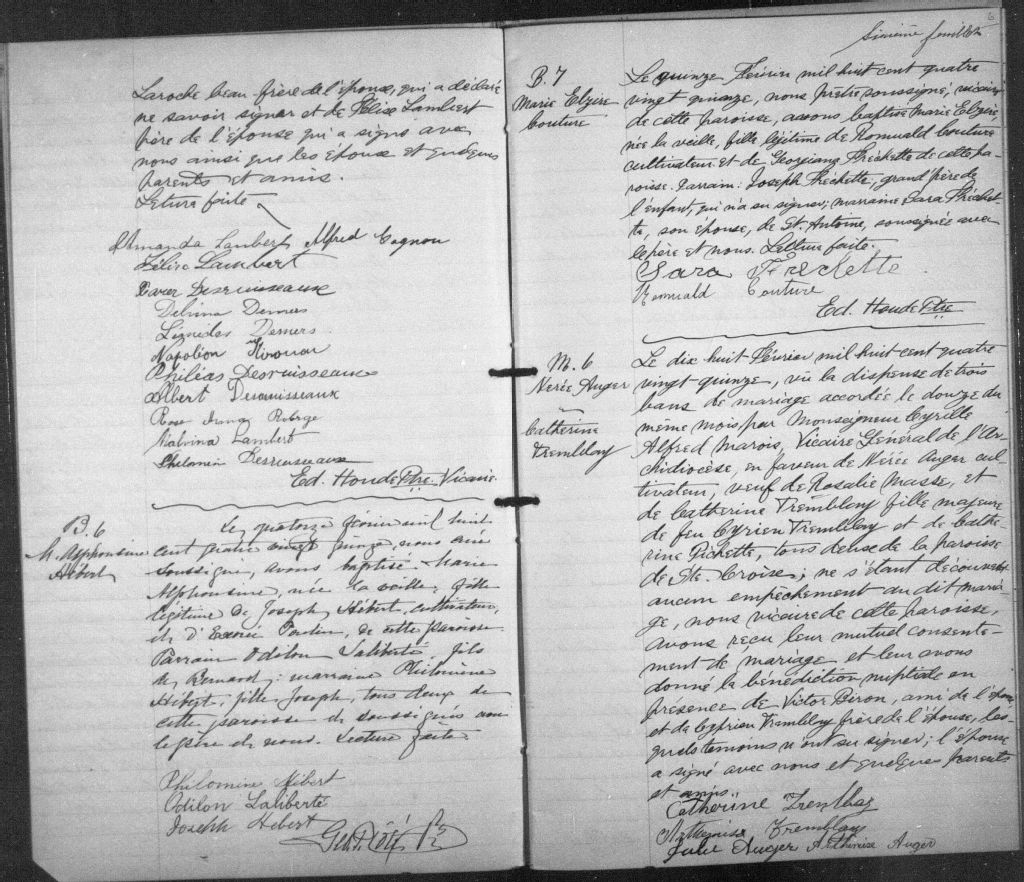 Laroche beau-frère de l'épouse, qui a déclaré
ne savoir signer et de Félise Lambert
père de l'épouse qui a signé avec
nous ainsi que les époux et quelques
parents et amis.
Lecture faite
Amanda Lambert Alfred Gagnon
Félise Lambert
Xavier Desruisseaux
Delvina Demers
Léonidas Demers
Napoléon
Philéas Desruisseaux
Albert Desruisseaux
Rose
Malvina Lambert
Philomin Desruisseaux
Ed. Houde Ptre. Vicaire
B. 6
M. Alphonsine
Hébert
Le quatorze février mil huit
cent quatre vingt quinze, nous curé
soussigné, avons baptisé Marie
Alphonsine, née la veille, fille
légitime de Joseph Hébert, cultivateur,
et d'Exérée, de cette paroisse.
Parrain Odilon Laliberté, fils
de Bernard; marraine Philomène
Hébert, fille Joseph, tous deux de
cette paroisse et soussignés avec
le père et nous. Lecture faite
Philomine Hébert
Odilon Laliberté
Joseph Hebert
6
Sixième feuillet
B. 7
Marie Elzire
Couture
Le quinze Février mil huit cent quatre
vingt quinze, nous prêtre soussigné, vicaire
de cette paroisse, avons baptisé Marie Elzire,
née la veille, fille légitime de Romuald Couture
cultivateur et de Georgiana Fréchette de cette pa-
roisse. Parrain: Joseph Fréchette, grand père de
l'enfant, qui n'a su signer; marraine Sara Fréchet-
te, son épouse, de St. Antoine, soussignée avec
le père et nous. Lecture faite.
Sara Frechette
Romuald Couture
Ed. Houde Ptre
M. 6
Nerée Auger
Catherine
Tremblay
Le dix huit Février mil huit cent quatre
vingt quinze, vû la dispense de trois
bans de mariage accordée le douze du
même mois par Monseigneur Cyrille
Alfred Marois, Vicaire Général de l'Ar-
chidiocèse, en faveur de Nérée Auger cul-
tivateur, veuf de Rosalie Masse, et
de Catherine Tremblay fille majeure
de feu Cyrien Tremblay et de Cathe-
rine Pichette, tous deux de la paroisse
de Ste. Croix; ne s'étant découvert
aucun empêchement au dit maria-
ge, nous vicaire de cette paroisse,
avons reçu leur mutuel consente-
ment de mariage et leur avons
donné la bénédiction nuptiale en
présence de Victor Biron, ami de l'époux
et de Cyprien Tremblay frère de l'épouse, les-
quels temoins n'ont su signer; l'épouse
a signé avec nous et quelques parents
et amis.
Catherine Tremblay
Tremblay
Julie Auger Arthémise Auger